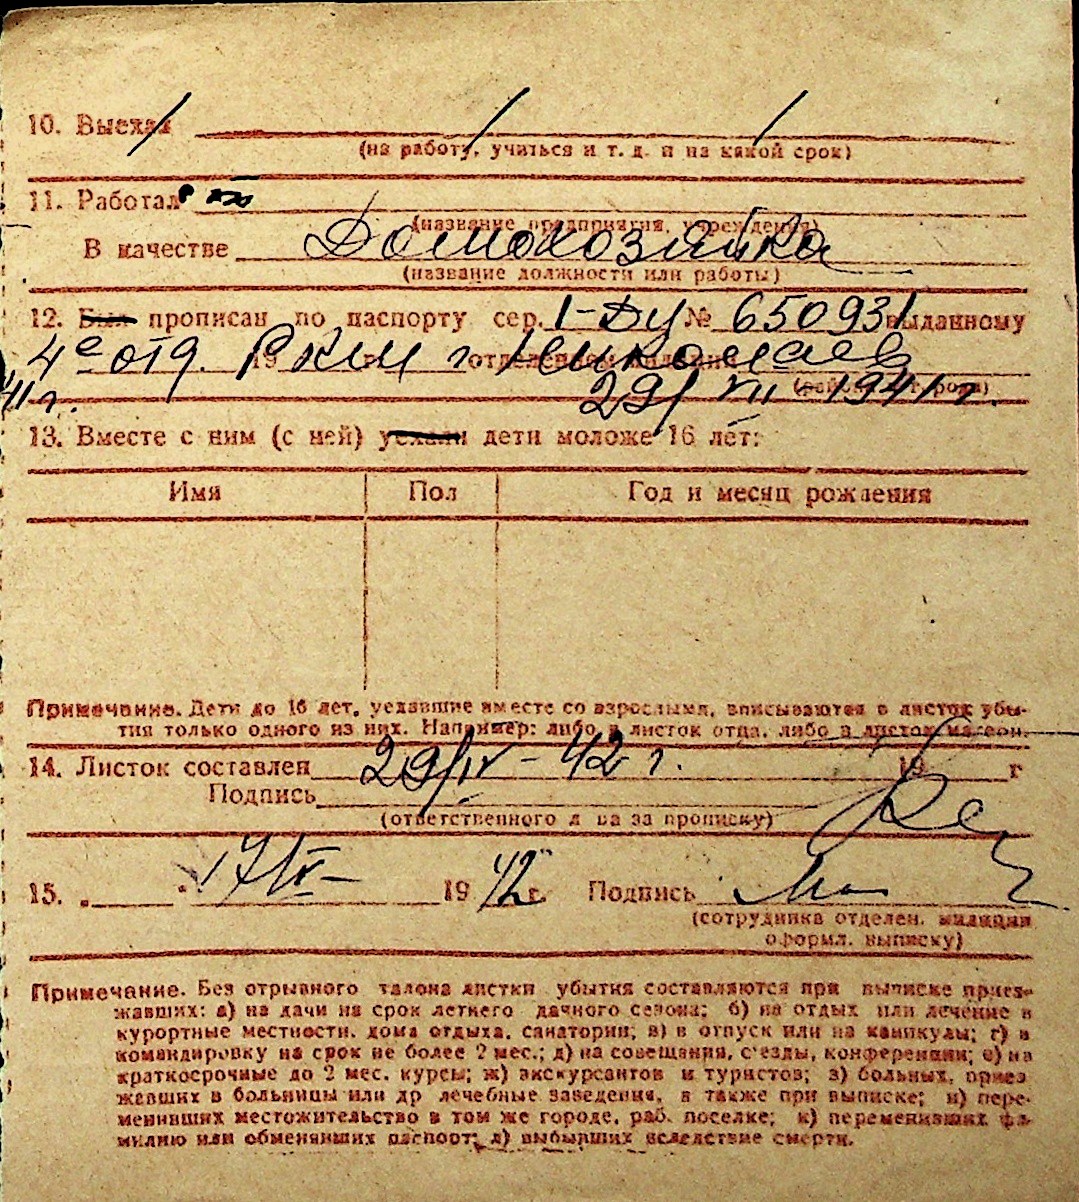 10. Выехал
(на работу, учиться и т. д. и на какой срок)
11. Работал
(название предприятия, учреждения)
В качестве Домохозяйка
(название должности или работы)
12. Был прописан по паспорту сер. I-ДУ № 650931 выданному
4е отд. РКМ г. Николаев
19 г. отделением милиции
41 г. 29/VII 1941 г.
13. Вместе с ним (с ней) уехали дети моложе 16 лет:
Имя Пол Год и месяц рождения
Примечание. Дети до 16 лет, уехавшие вместе со взрослыми, вписываются в листок убы-
тия только одного из них. Например: либо в листок отца, либо в листок матери.
14. Листок составлен 29/IV - 42 г. 19 г
Подпись
(ответственного л ца за прописку)
15. 17/V- 1942 г. Подпись
(сотрудника отделен. милиции
оформл. выписку)
Примечание. Без отрывного талона листки убытия составляются при выписке приез-
жавших: а) на дачи на срок летнего дачного сезона; б) на отдых или лечение в
курортные местности, дома отдыха, санатории; в) в отпуск или на каникулы; г) в
командировку на срок не более 2 мес.; д) на совещания, с'езды, конференции; е) на
краткосрочные до 2 мес. курсы; ж) экскурсантов и туристов; з) больных, приез
жавших в больницы или др лечебные заведения, а также при выписке; и) пере-
менивших местожительство в том же городе, раб. поселке; к) переменивших фа-
милию или обменявших паспорт; л) выбывших вследствие смерти.